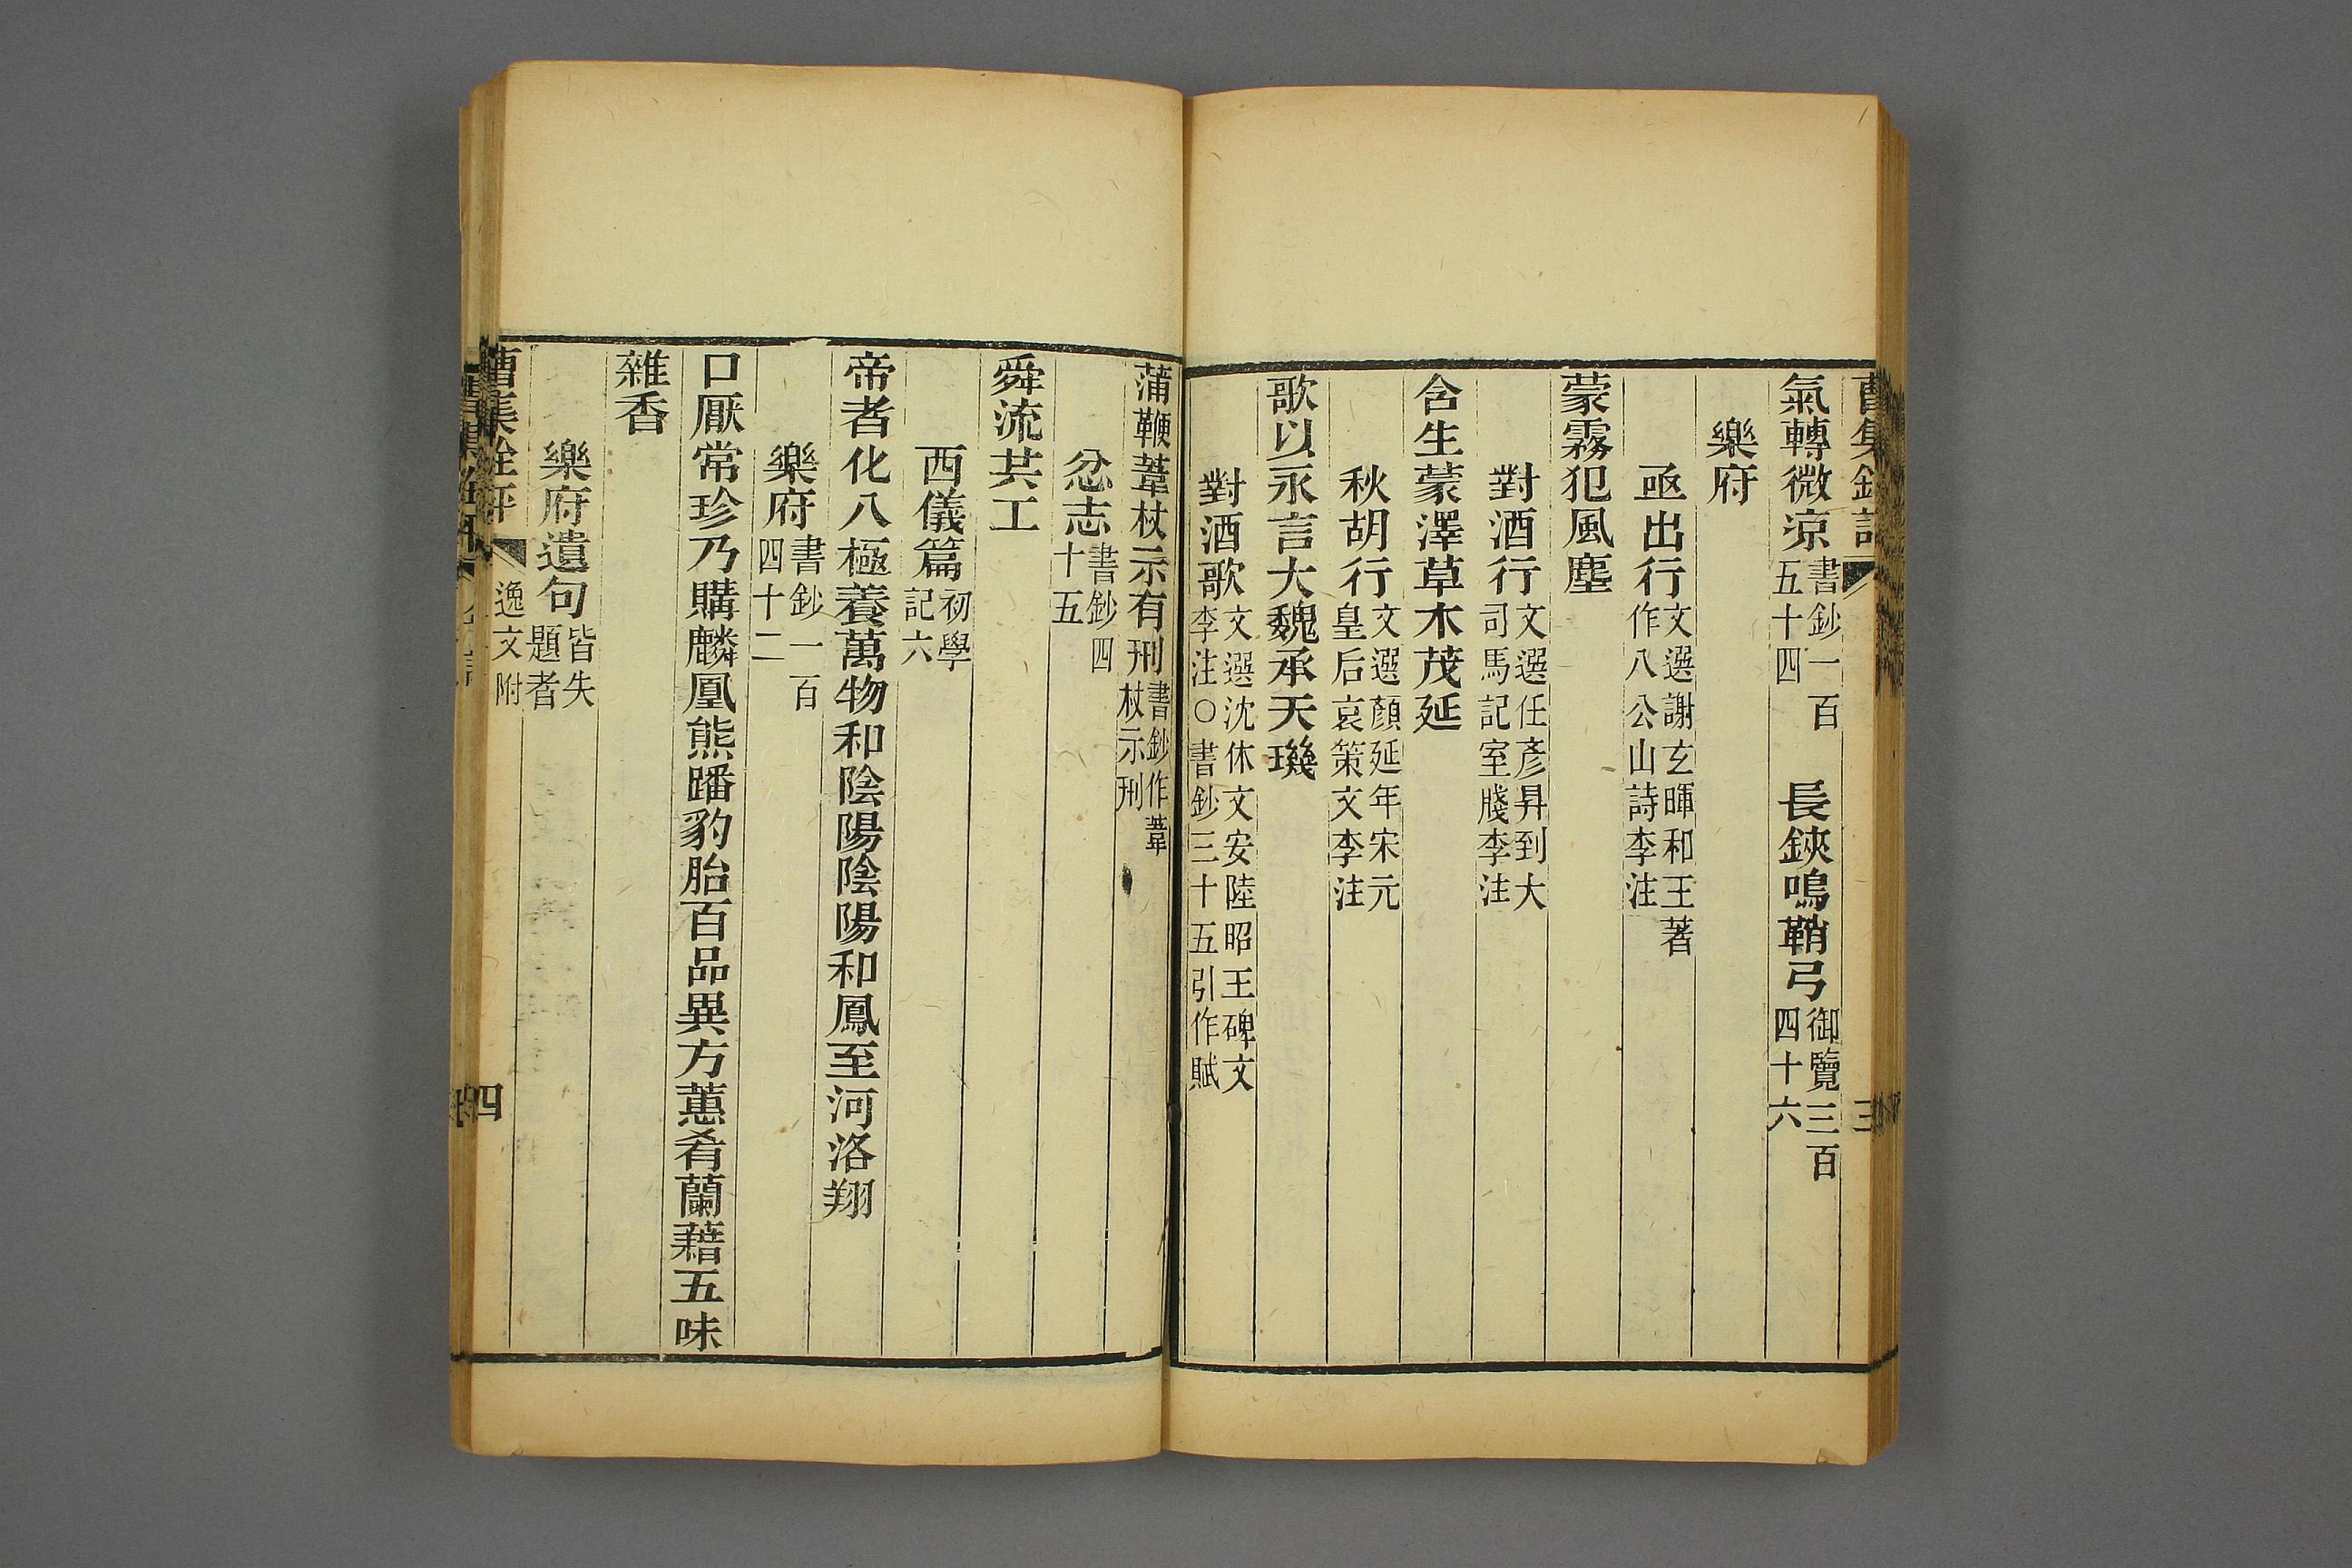 氣轉微凉書鈔一百五十四 長鋏鳴鞘弓御覽三百四十六
樂府
亟出行文選謝玄暉和王著作八公山詩李注
蒙霧犯風塵
對酒行文選任彥昇到大司馬記室牋李注
含生蒙澤草木茂延
秋胡行文選顏延年宋元皇后哀策文李注
歌以永言大魏承天璣
對酒歌文選沈休文安陸昭王碑文李注○書鈔三十五引作賦
蒲鞭葦杖示有刑書鈔作葦杖示刑
忿志書鈔四十五
舜流共工
西儀篇初學記六
帝者化八極養萬物和陰陽陰陽和鳳至河洛翔
樂府書鈔一百四十二
口厭常珍乃購麟凰熊蹯豹胎百品異方蕙肴蘭藉五味
雜香
樂府遺句皆失題者
曹集銓評 逸文附 四